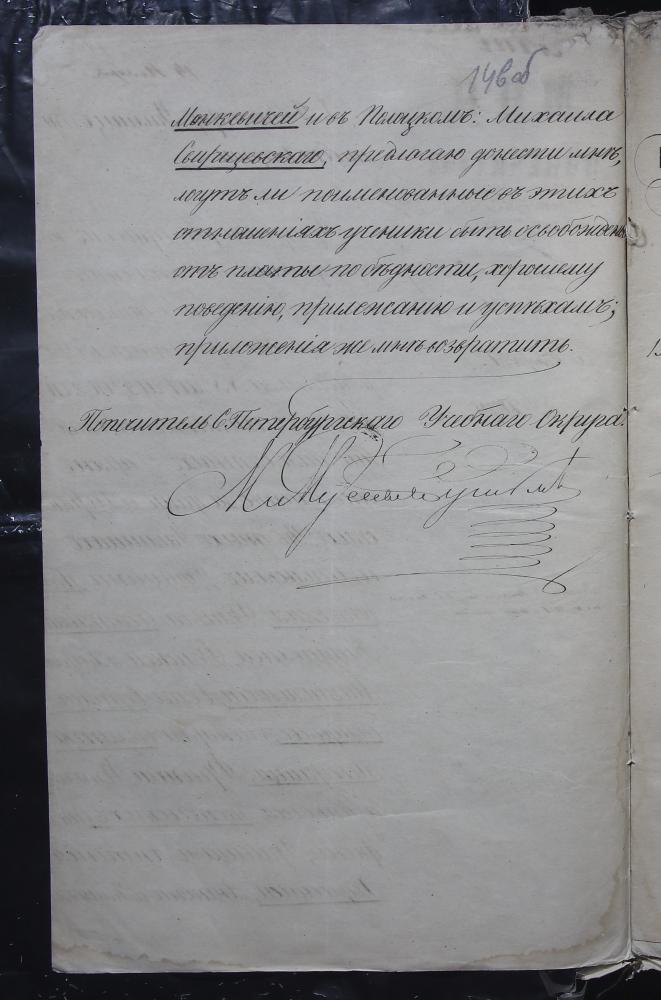 14 об
Манкевичей и въ Полоцкомъ: Михаила
Свирщевскаго, предлагаю донести мнѣ,
могутъ ли поименованные въ этихъ
отношеніяхъ ученики быть освобождены
отъ платы по бѣдности, хорошему
поведенію, прилежанію и успѣхамъ;
приложенія же мнѣ возвратить.
Попечитель С. Петербургскаго Учебнаго Округа